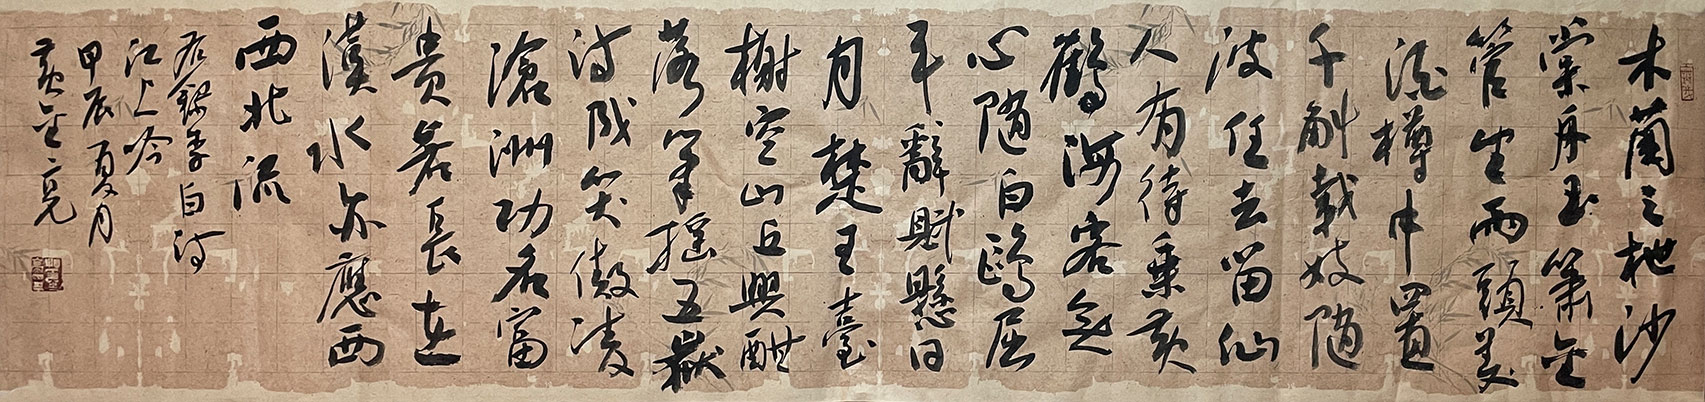 木蘭之枻沙
棠舟玉簫金
管坐兩頭美
酒樽中置
千斛載妓隨
波任去留仙
人有待乘黃
鶴海客無
心隨白鷗屈
平辭賦懸日
月楚王臺
榭空山丘興酣
落筆搖五嶽
詩成笑傲凌
滄洲功名富
貴若長在
漢水亦應西
西北流
右錄李白詩
江上吟
甲辰夏月
金亮